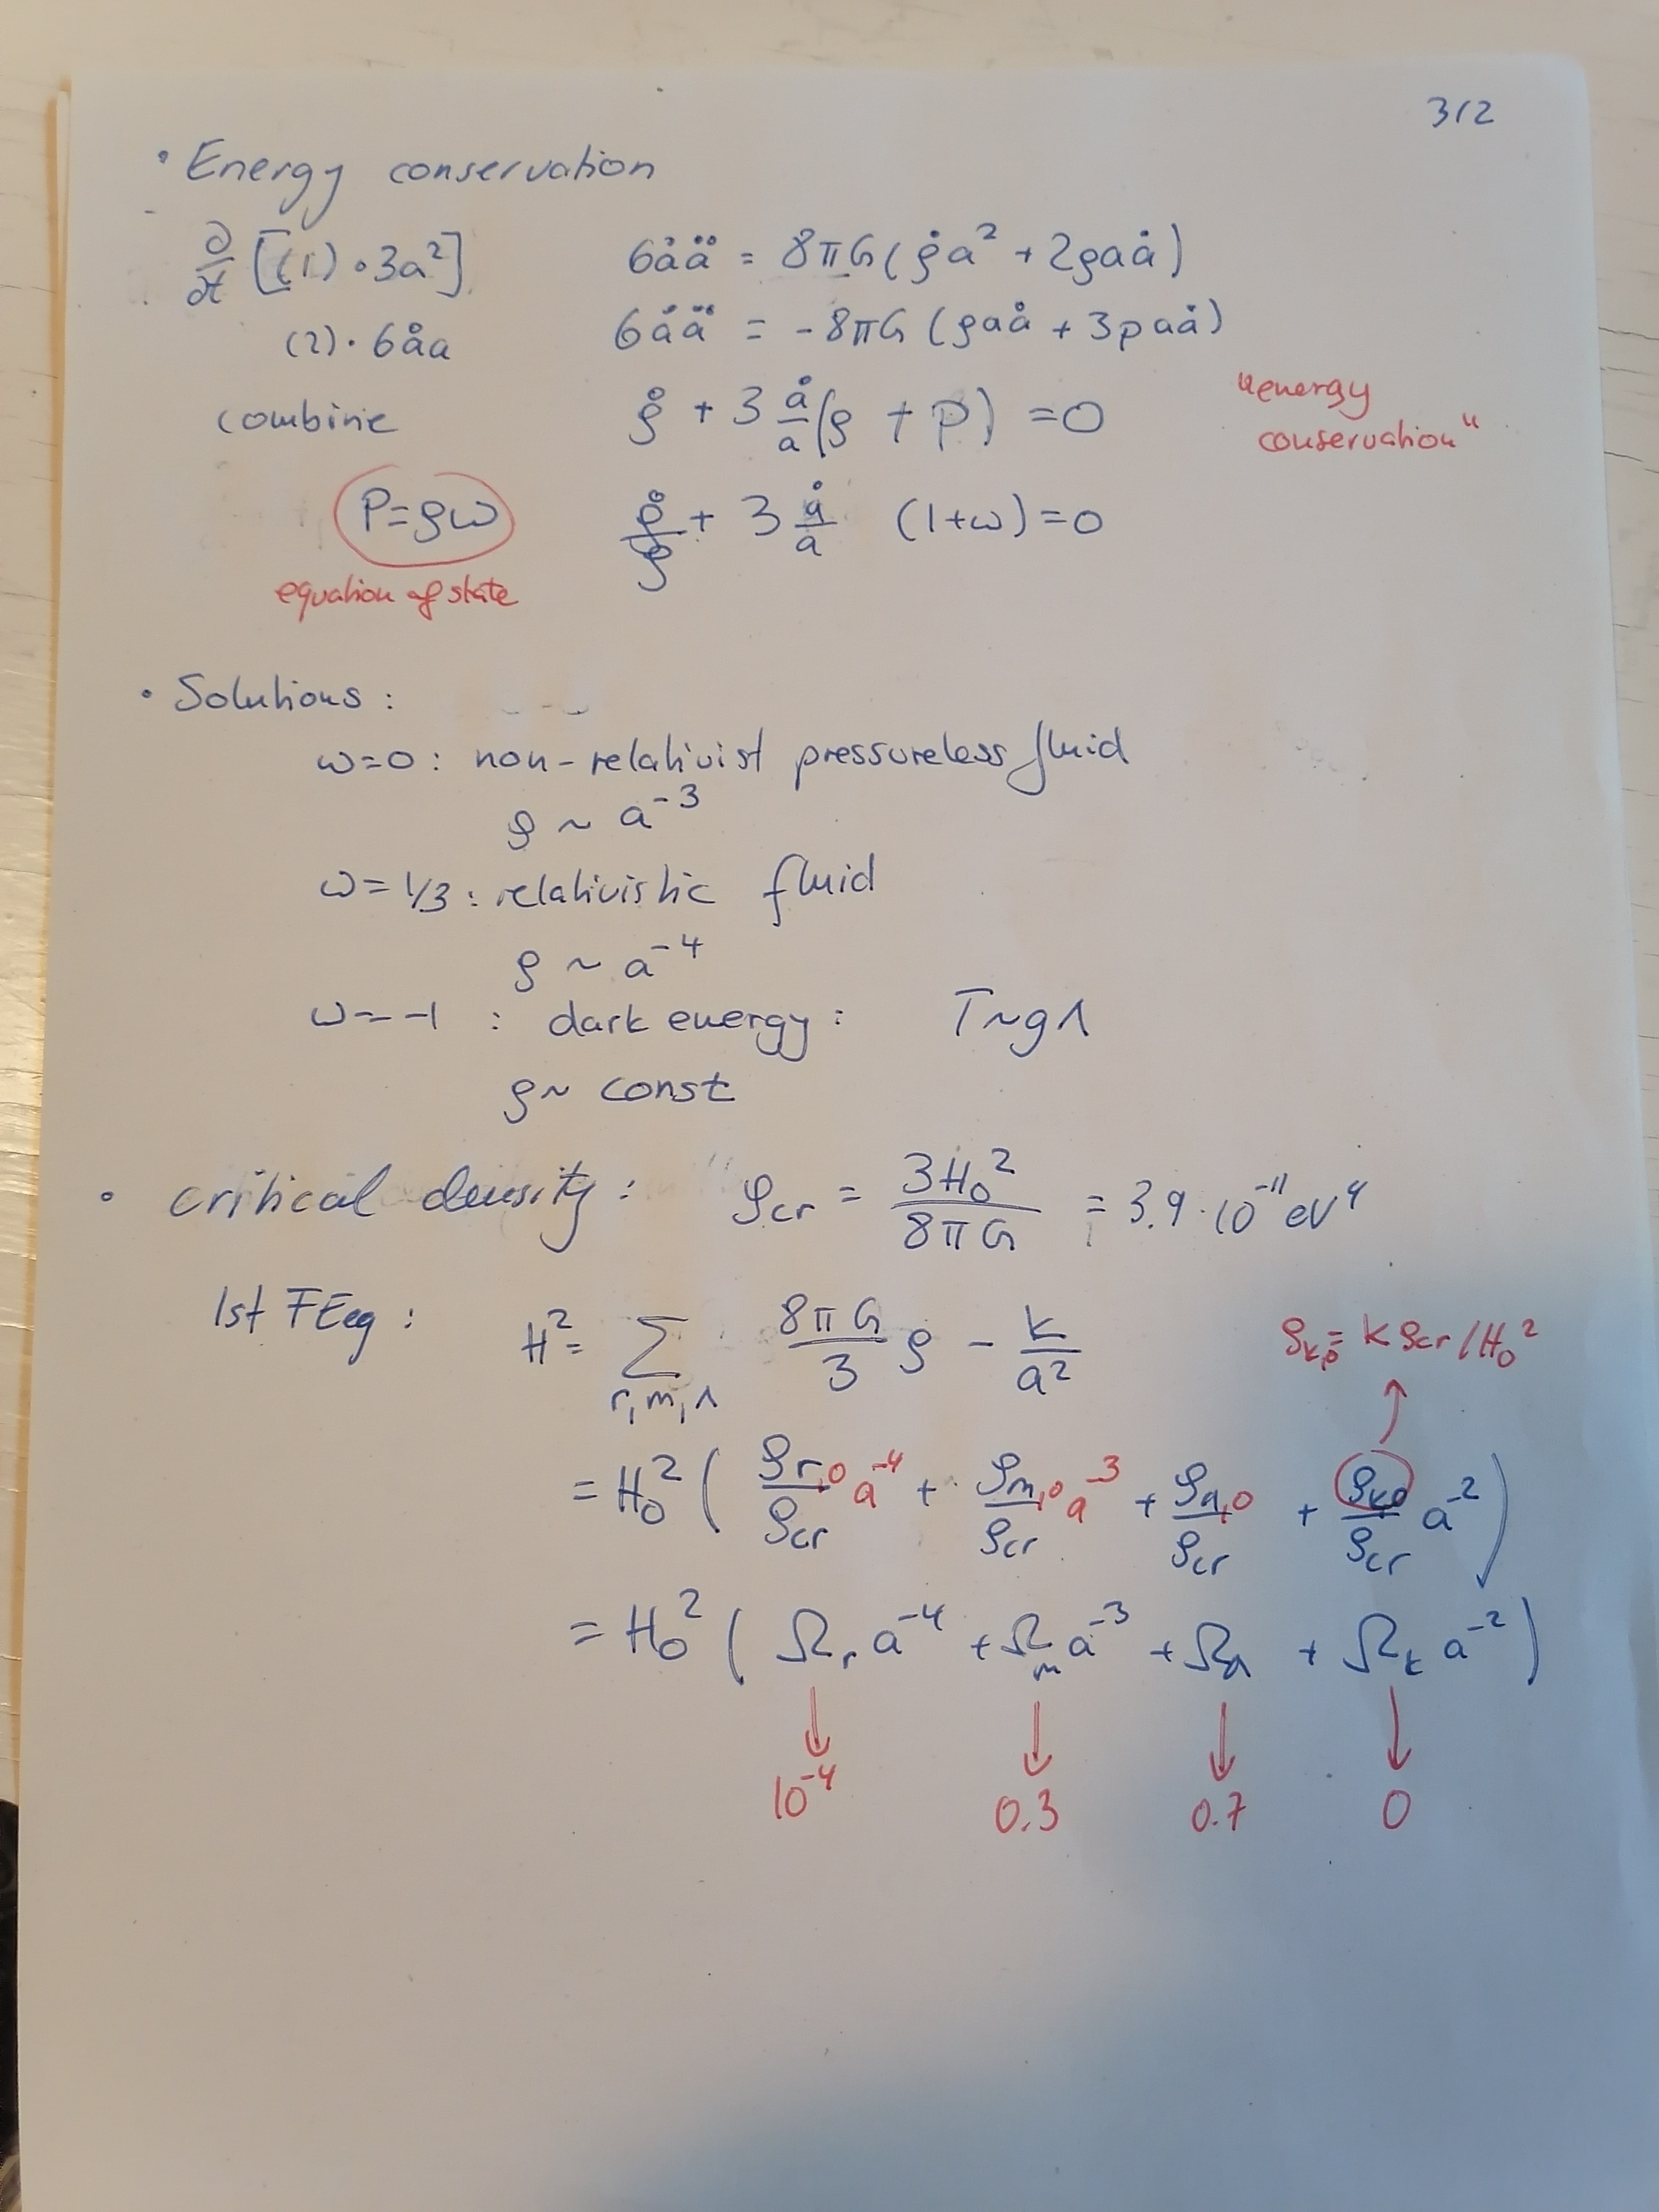 3/2
• Energy conservation
∂/∂t [(1)·3a²] 6ȧä = 8πG(ρ̇a² + 2ρaȧ)
(2)·6ȧa 6ȧä = -8πG (ρaȧ + 3paȧ)
combine ρ̇ + 3 ȧ/a (ρ + P) = 0 "energy conservation"
P=ρω ρ̇/ρ + 3 ȧ/a (1+ω)=0
equation of state
• Solutions:
ω=0: non-relativist pressureless fluid
ρ ~ a⁻³
ω=1/3: relativistic fluid
ρ ~ a⁻⁴
ω=-1 : dark energy: T~gΛ
ρ~ const
• critical density: ρcr = 3H₀²/8πG = 3.9·10⁻¹¹eV⁴
1st FEeq: H² = Σ r,m,Λ 8πG/3 ρ - k/a² ρk,0 = kρcr/H₀²
= H₀² ( ρr,0/ρcr a⁻⁴ + ρm,0/ρcr a⁻³ + ρΛ,0/ρcr + ρk,0/ρcr a⁻² )
= H₀² ( Ωr a⁻⁴ + Ωm a⁻³ + ΩΛ + Ωk a⁻² )
10⁻⁴ 0.3 0.7 0